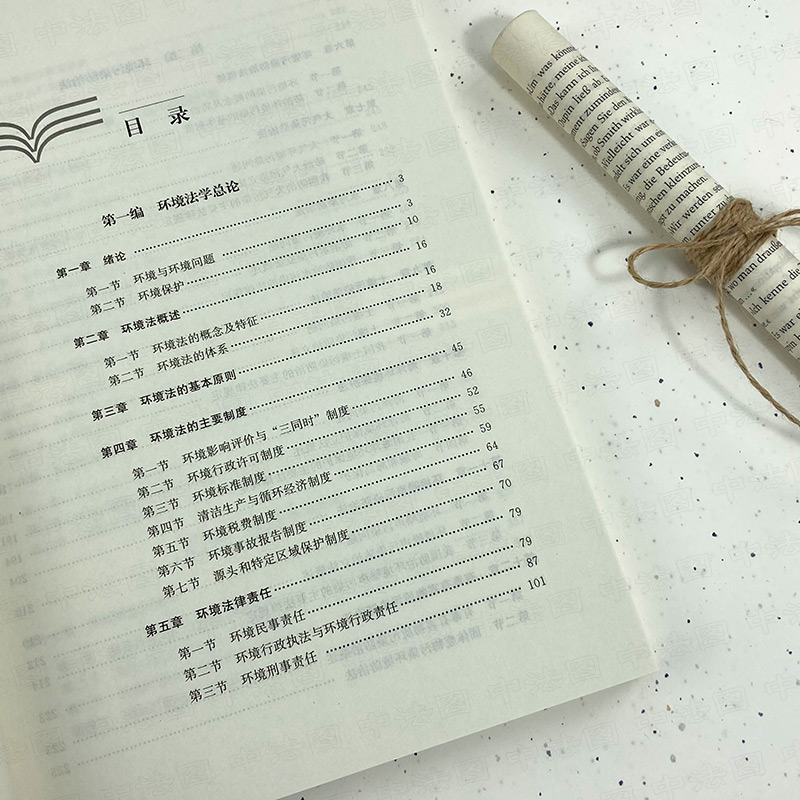 目 录
第一编 环境法学总论
第一章 绪论 3
第一节 环境与环境问题 3
第二节 环境保护 10
第二章 环境法概述 16
第一节 环境法的概念及特征 16
第二节 环境法的体系 18
第三章 环境法的基本原则 32
第四章 环境法的主要制度 45
第一节 环境影响评价与“三同时”制度 46
第二节 环境行政许可制度 52
第三节 环境标准制度 55
第四节 清洁生产与循环经济制度 59
第五节 环境税费制度 64
第六节 环境事故报告制度 67
第七节 源头和特定区域保护制度 70
第五章 环境法律责任 79
第一节 环境民事责任 79
第二节 环境行政执法与环境行政责任 87
第三节 环境刑事责任 101
Um was
hätte, meine
Das kann ich
Dupin ließ ab.
sagen Sie den
ob Smith
Vielleicht war
sich um
war eine
die
zu machen.
Wir werden
runter zu
wo man
ich kenne die
war